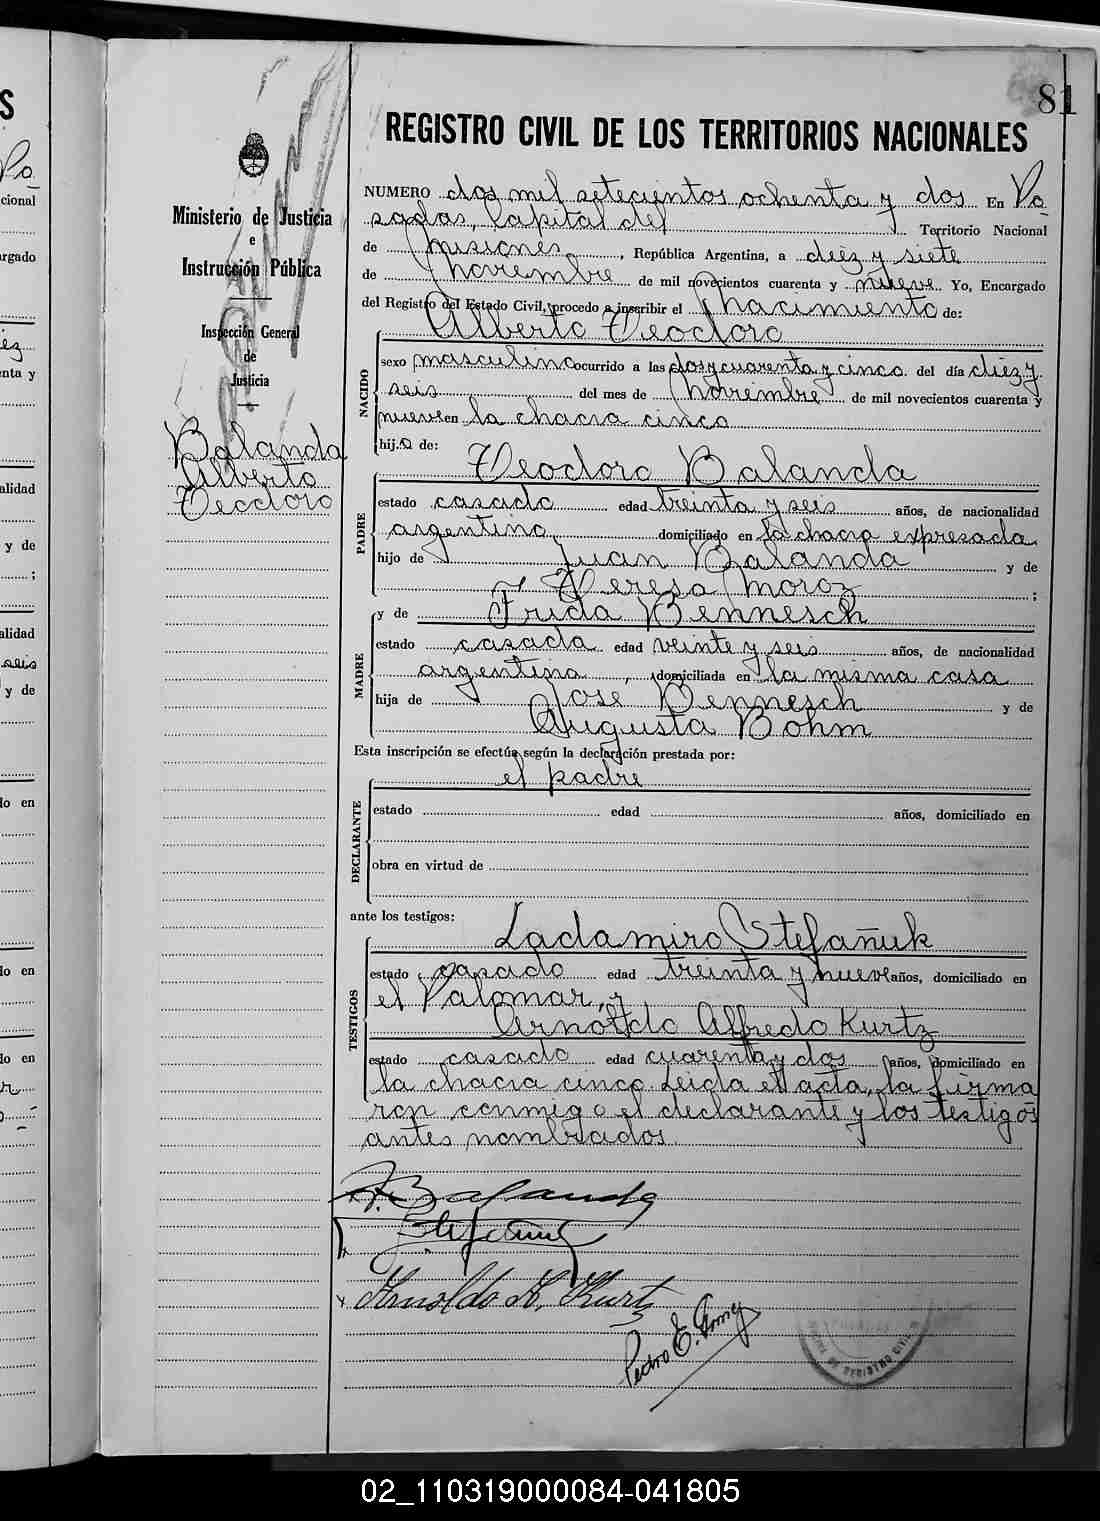 81
REGISTRO CIVIL DE LOS TERRITORIOS NACIONALES
Ministerio de Justicia
e
Instrucción Pública
Inspección General
de
Justicia
Balanda
Alberto
Teodoro
NUMERO dos mil setecientos ochenta y dos En Po-
sadas, Capital del Territorio Nacional
de Misiones, República Argentina, a diez y siete
de Noviembre de mil novecientos cuarenta y nueve Yo, Encargado
del Registro del Estado Civil, procedo a inscribir el Nacimiento de:
Alberto Teodoro
NACIDO
sexo masculino ocurrido a las dos y cuarenta y cinco del día diez y
seis del mes de Noviembre de mil novecientos cuarenta y
nueve en la chacra cinco
hijo de: Teodoro Balanda
PADRE
estado casado edad treinta y seis años, de nacionalidad
argentina domiciliado en la chacra expresada
hijo de Juan Balanda y de
Teresa Moroz ;
y de Frida Bennesch
MADRE
estado casada edad veinte y seis años, de nacionalidad
argentina, domiciliada en la misma casa
hija de Jose Bennesch y de
Augusta Bohm
Esta inscripción se efectúa según la declaración prestada por:
el padre
DECLARANTE
estado edad años, domiciliado en
obra en virtud de
ante los testigos: Ladamiro Stefañuk
TESTIGOS
estado casado edad treinta y nueve años, domiciliado en
el Palomar, y
Arnoldo Alfredo Kurtz
estado casado edad cuarenta y dos años, domiciliado en
la chacra cinco. Leida el acta, la firma
ron conmigo el declarante y los testigos
antes nombrados.
T. Balanda
Arnoldo A. Kurtz
Pedro E.
REGISTRO CIVIL
02_110319000084-041805